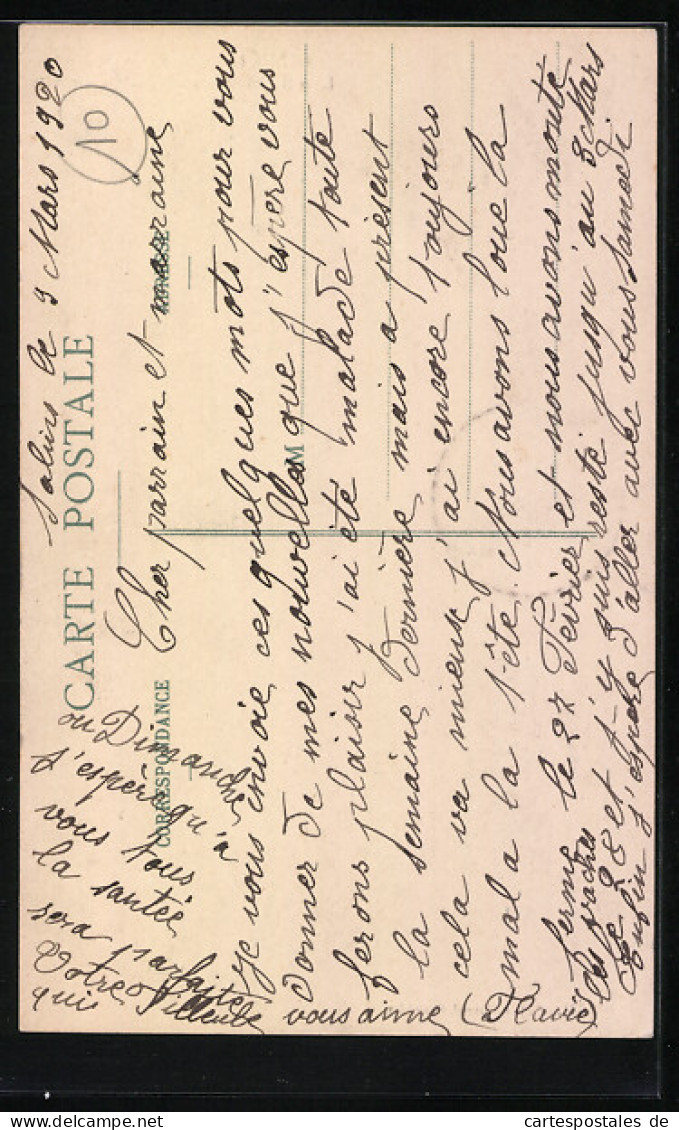 Salins le 9 Mars 1920
10
CARTE POSTALE
CORRESPONDANCE
M
Cher parrain et marraine
Je vous envoie ces quelques mots pour vous
donner de mes nouvelles que j'espère vous
ferons plaisir j'ai été malade toute
la semaine dernière mais a présent
cela va mieux j'ai encore toujours
mal a la tête. Nous avons loué la
ferme le 27 Févrièr et nous avons monté
les vaches
le 28 et j'y suis resté jusqu'au 8 Mars
Enfin j'espère d'aller avec vous Samedi
ou Dimanche
J'espère qu'à
vous tous
la santée
sera parfaite
Votre filleule
qui vous aime
cartespostales de
www.delcampe.net